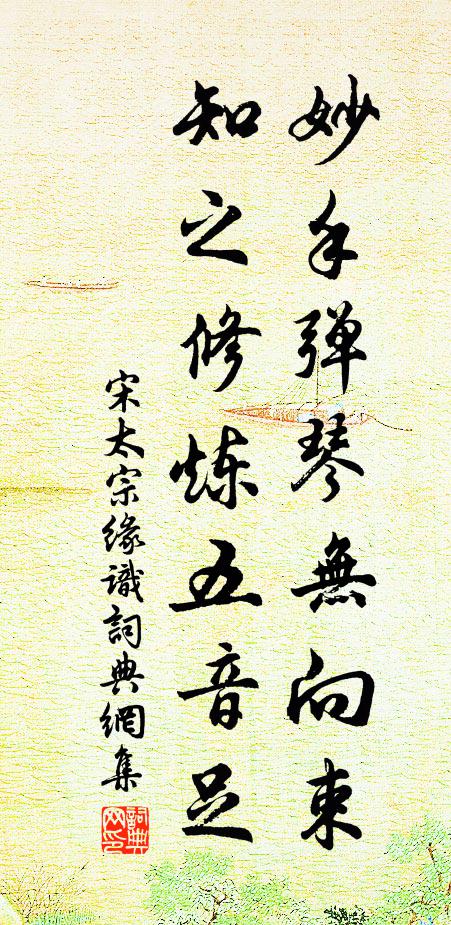 妙手弹琴無向束
知之修炼五音足
宋太宗緣識詞典網集
詞典网印